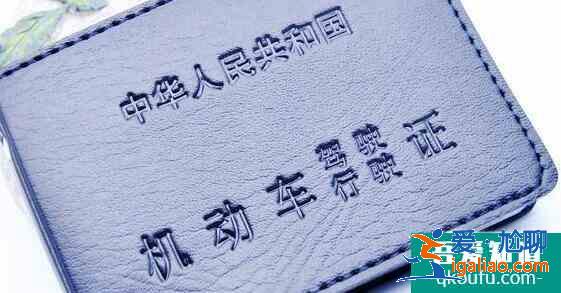 中华人民共和国
机动车驾驶行驶证
爱尬聊
igaliao.com